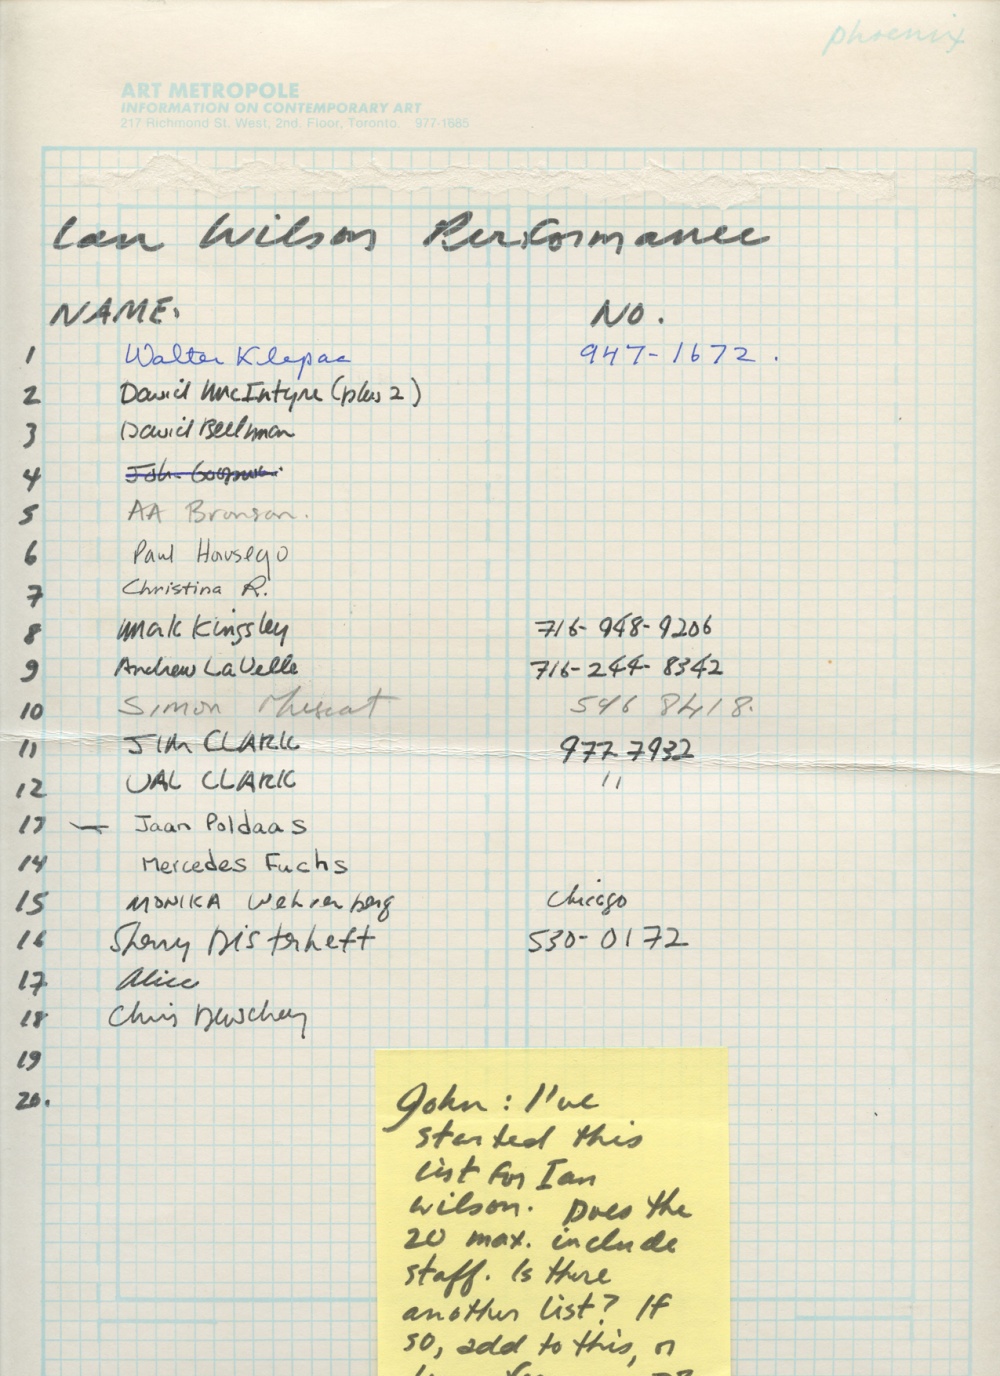 phoenix
ART METROPOLE
INFORMATION ON CONTEMPORARY ART
217 Richmond St. West, 2nd. Floor, Toronto. 977-1685
Ian Wilson Performance
NAME: NO.
1 Walter Klepac 947-1672.
2 David McIntyre (plus 2)
3 David Bellman
4
5 AA Bronson.
6 Paul Housego
7 Christina R.
8 Mark Kingsley 716-948-9206
9 Andrew LaVelle 716-244-8342
10 Simon Muscat 596 8418.
11 JIM CLARK 977 7932
12 VAL CLARK 11
13 — Jaan Poldaas
14 Mercedes Fuchs
15 MONIKA Wehrenberg Chicago
16 Sherry 530-0172
17 Alice
18 Chris Dewdney
19
20.
John: I've
started this
list for Ian
Wilson. Does the
20 max. include
staff. Is there
another list? If
so, add to this, or